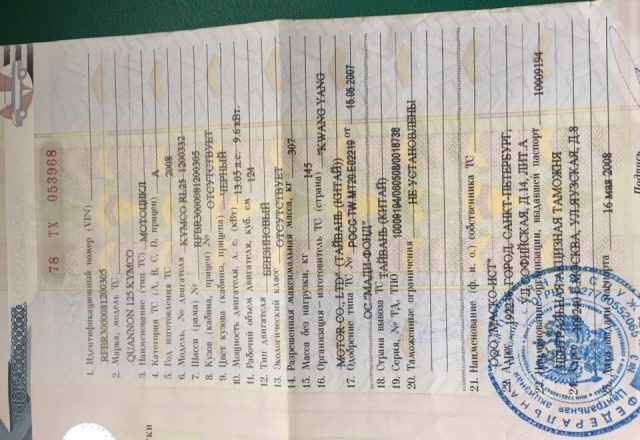 78 ТХ 053968
1. Идентификационный номер (VIN)
RFBR30000B1200305
2. Марка, модель ТС
QUANNON 125 KYMCO
3. Наименование (тип ТС) МОТОЦИКЛ
4. Категория ТС (А, В, С, D, прицеп) А
5. Год изготовления ТС 2008
6. Модель, № двигателя KYMCO RL25-1200332
7. Шасси (рама) № RFBR30000B1200305
8. Кузов (кабина, прицеп) № ОТСУТСТВУЕТ
9. Цвет кузова (кабины, прицепа) ЧЕРНЫЙ
10. Мощность двигателя, л. с. (кВт) 13.05 л.с. 9.6 кВт.
11. Рабочий объем двигателя, куб. см 124
12. Тип двигателя БЕНЗИНОВЫЙ
13. Экологический класс ОТСУТСТВУЕТ
14. Разрешенная максимальная масса, кг 307
15. Масса без нагрузки, кг 145
16. Организация – изготовитель ТС (страна) "KWANG YANG
MOTOR CO, LTD" (ТАЙВАНЬ (КИТАЙ))
17. Одобрение типа ТС № РОСС TW.МТ20.Е02219 от 15.06.2007
ОС "МАДИ-ФОНД"
18. Страна вывоза ТС ТАЙВАНЬ (КИТАЙ)
19. Серия, № ТД, ТПО 10009194/060508/0018738
20. Таможенные ограничения НЕ УСТАНОВЛЕНЫ
21. Наименование (ф. и. о.) собственника ТС
22. Адрес ГОРОД САНКТ-ПЕТЕРБУРГ,
УЛ СОФИЙСКАЯ, Д 14, ЛИТ.А
23. Наименование организации, выдавшей паспорт 10009194
ЦЕНТРАЛЬНАЯ АКЦИЗНАЯ ТАМОЖНЯ
24. Адрес МОСКВА, УЛ.ЯУЗСКАЯ, Д.8
паспорта 16 мая 2008
Подпись